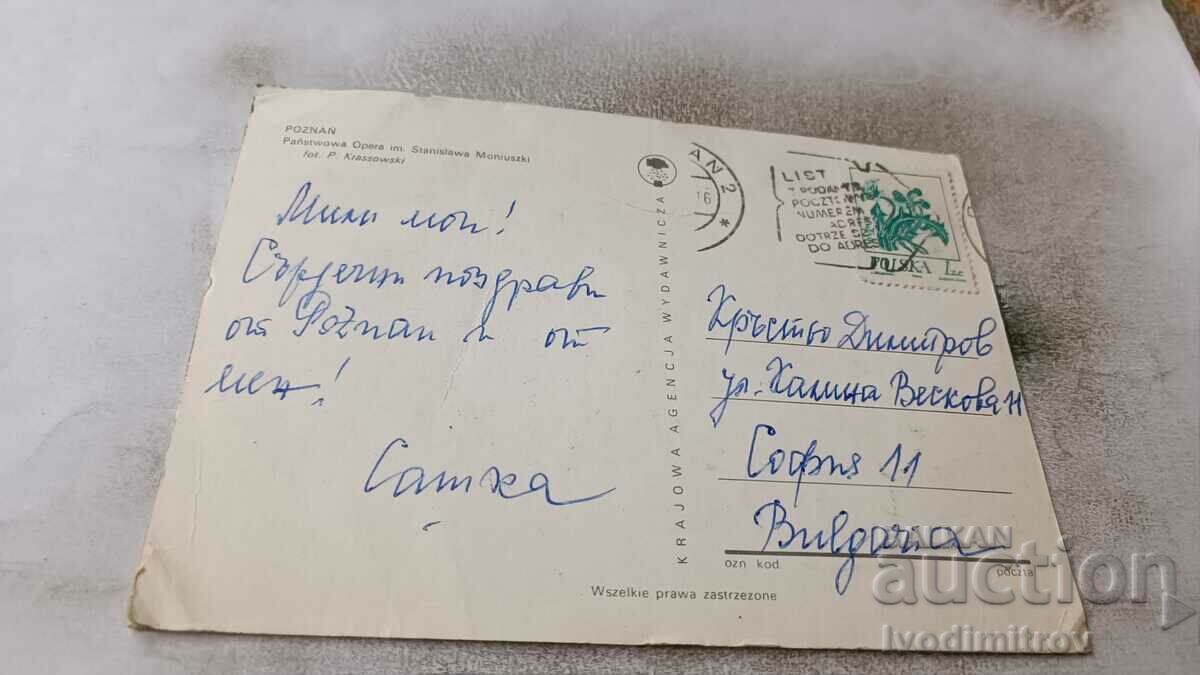 POZNAŃ
Państwowa Opera im. Stanisława Moniuszki
fot. P. Krassowski
Мили мои!
Сърдечни поздрави
от Poznan и от
мен!
Сашка
KRAJOWA AGENCJA WYDAWNICZA
AN 2 *
16
LIST
Z PODANYM
POCZTOWYM
NUMEREM
ADRES
DOTRZE
DO ADRES
POLSKA 1 ZŁ
Кръстьо Димитров
ул. Калина Вескова 11
София 11
Bulgaria
ozn kod
poczta
Wszelkie prawa zastrzeżone
BALKAN
auction
Ivodimitrov